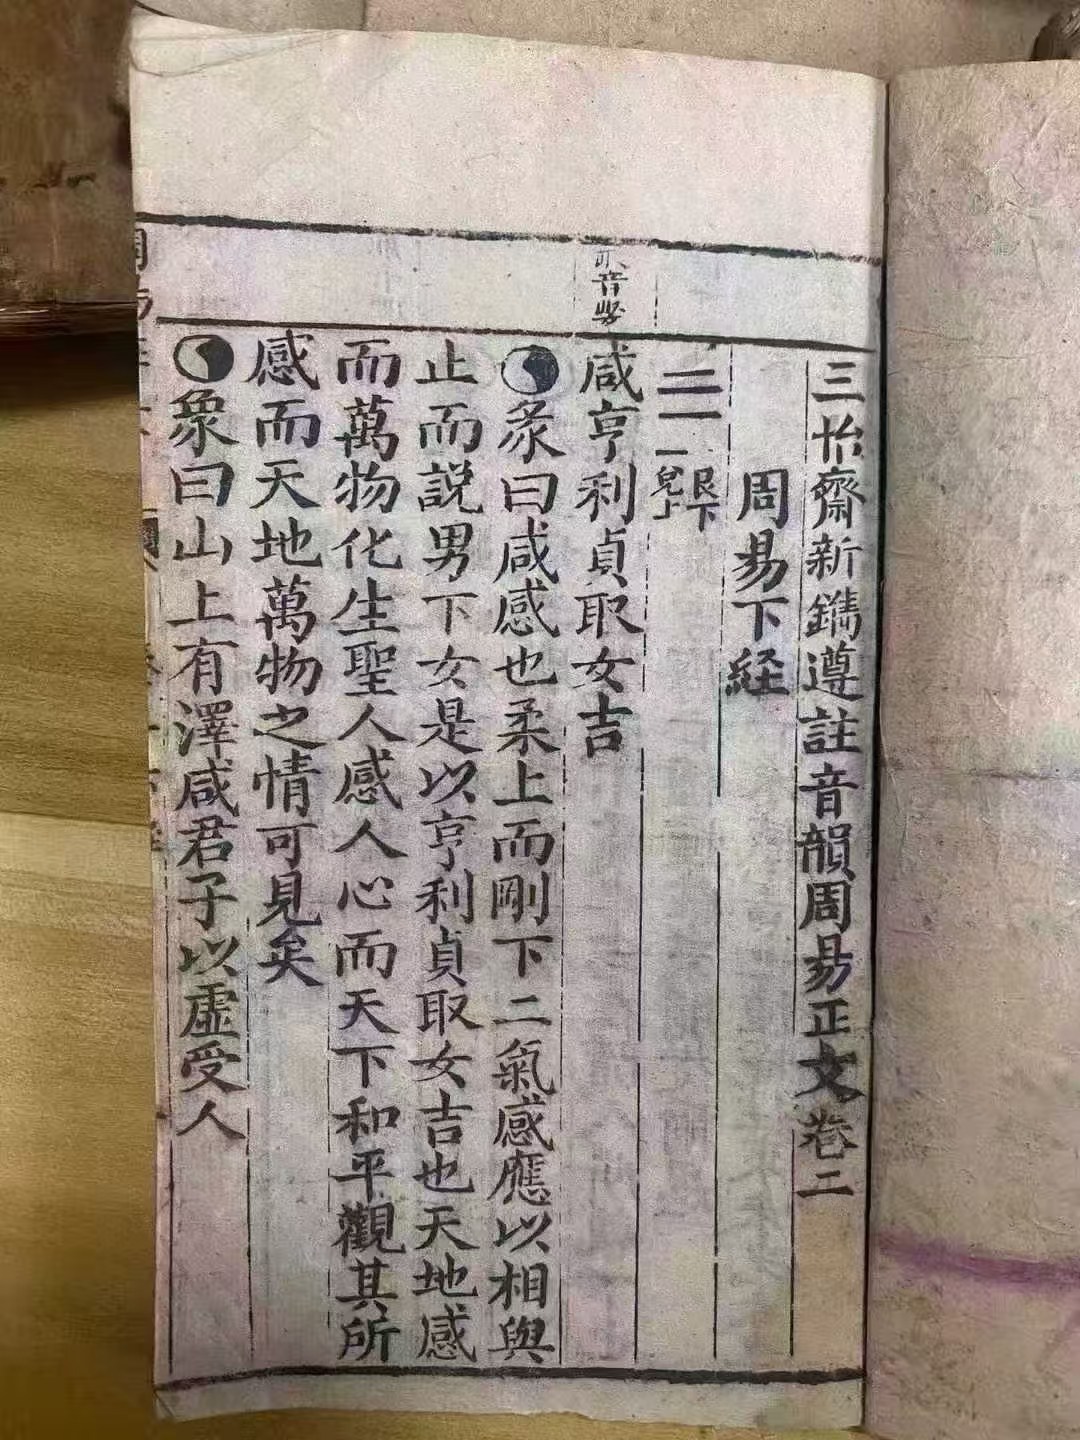 三怡齋新鐫遵註音韻周易正文卷二
周易下経
艮下
兌上
音娶
咸亨利貞取女吉
彖曰咸感也柔上而剛下二氣感應以相與
止而説男下女是以亨利貞取女吉也天地感
而萬物化生聖人感人心而天下和平觀其所
感而天地萬物之情可見矣
象曰山上有澤咸君子以虛受人